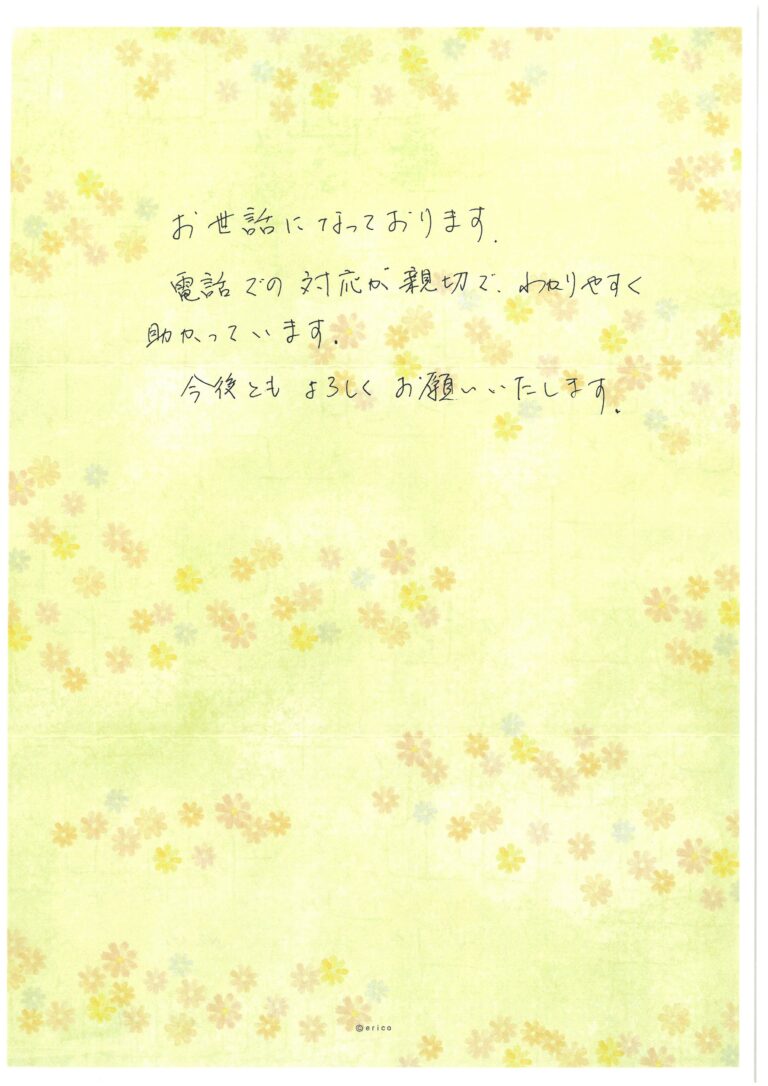 お世話になっております.
電話での対応が親切で、わかりやすく
助かっています.
今後ともよろしくお願いいたします.
©erico